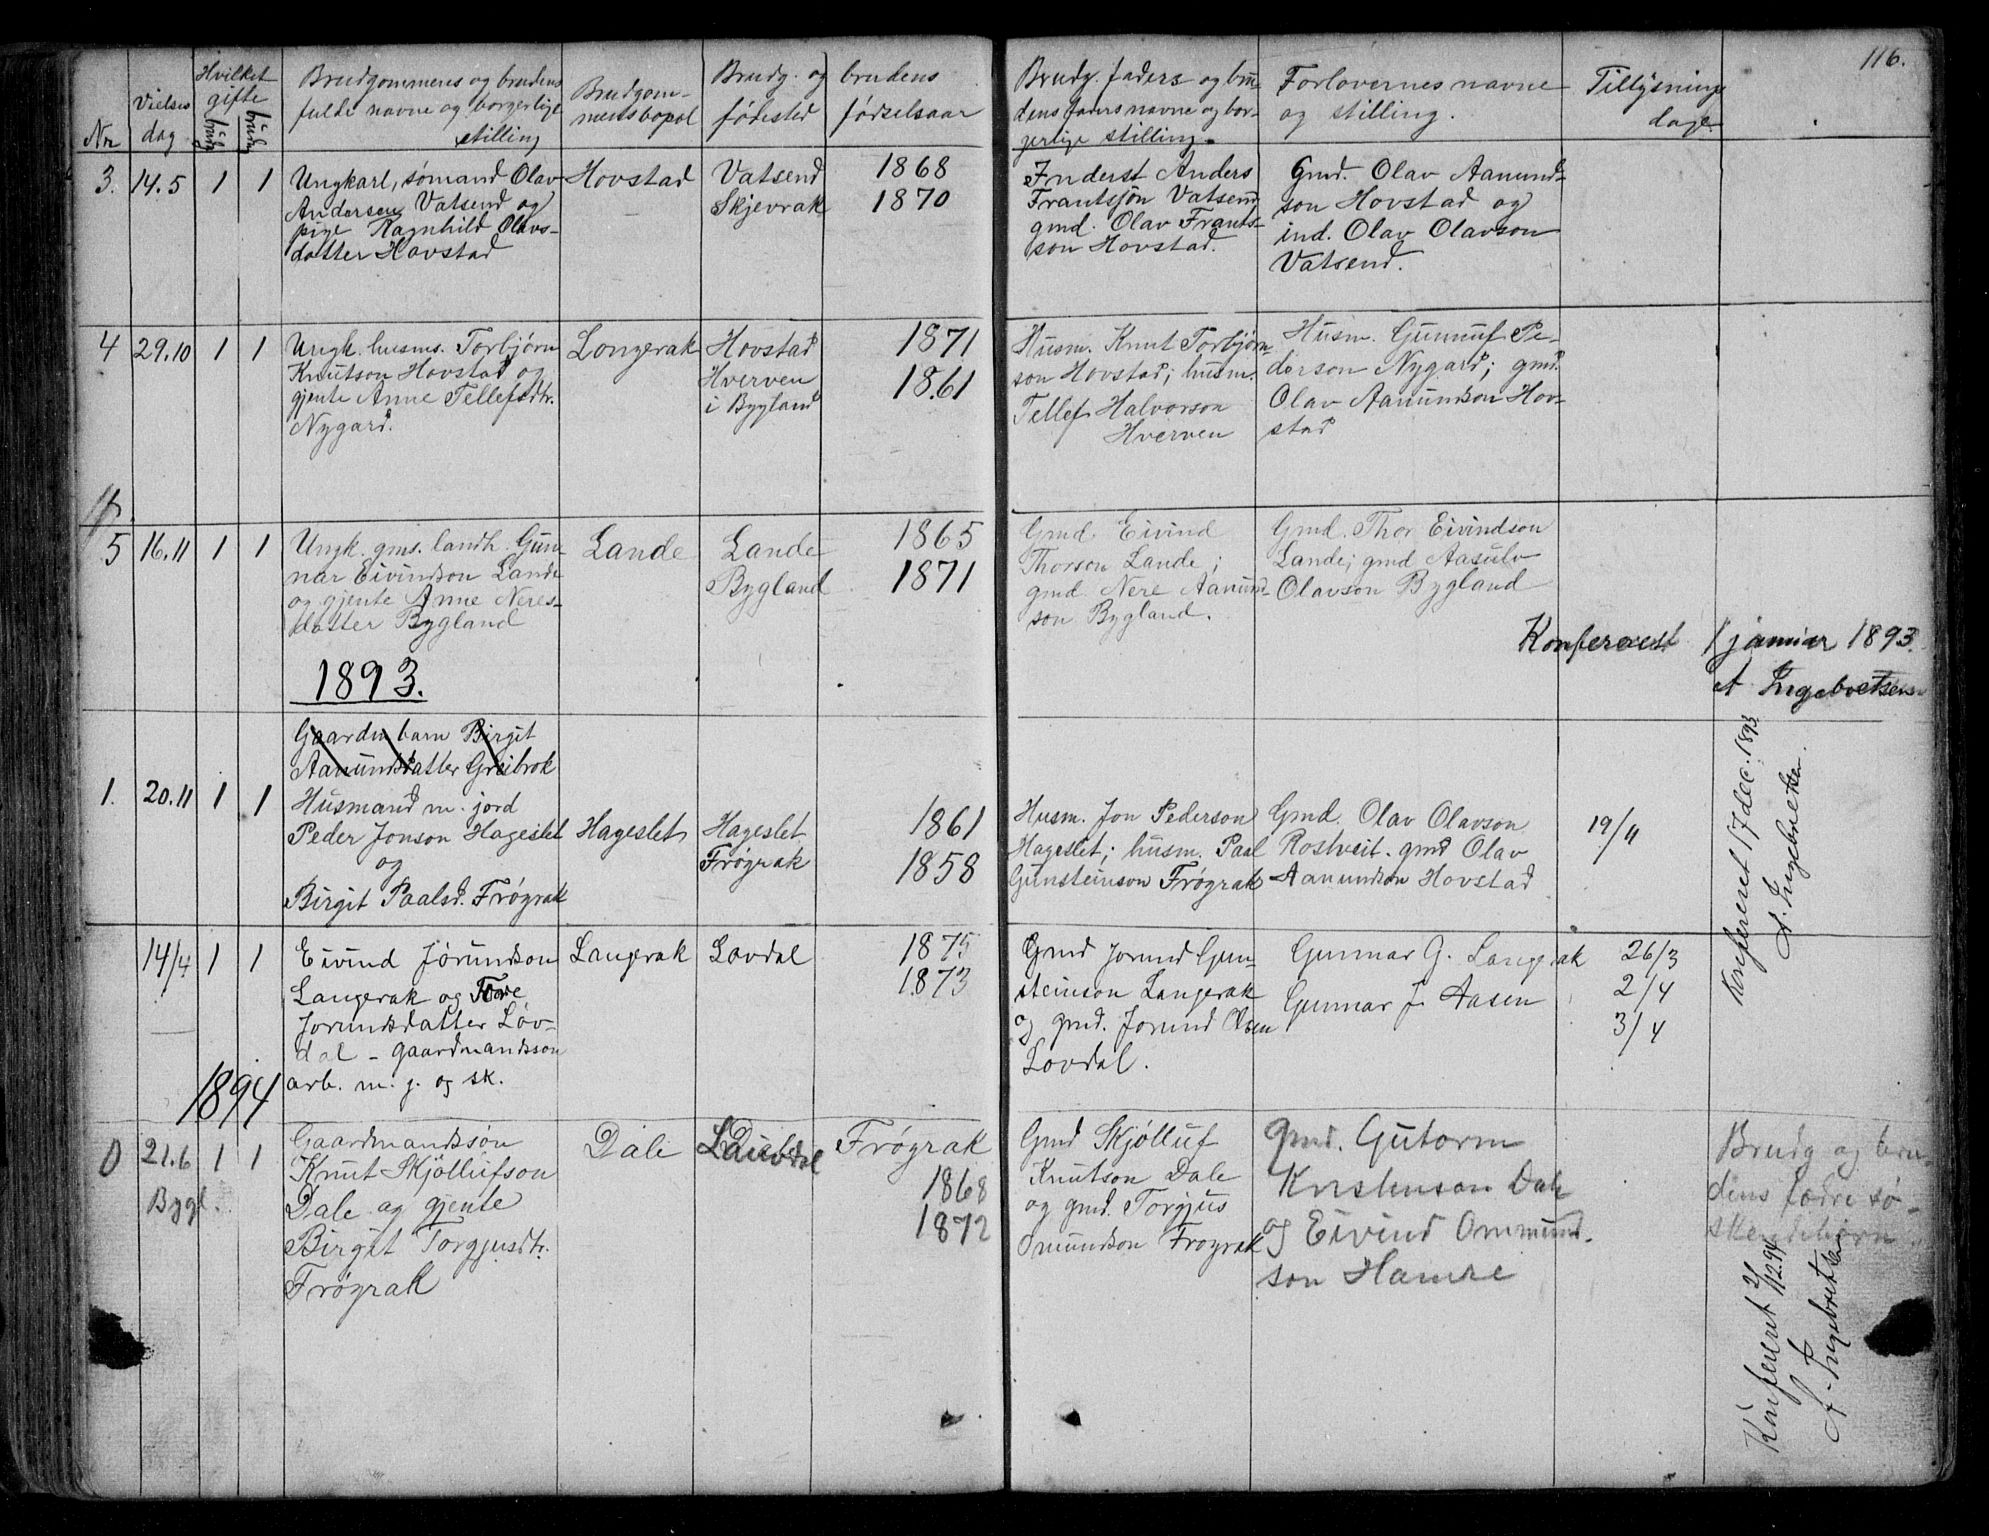 116.
Nr.
Vielses
dag
Hvilket
gifte
brudg.
bruden
Brudgommens og brudens
fulde navne og borgerlige
stilling
Brudgom-
mens bopæl
Brudg. og brudens
fødested fødselsaar
Brudg. faders og bru-
dens faders navne og bor-
gerlige stilling.
Forlovernes navne
og stilling.
Tillysnings
dage
3. 14.5 1 1
Ungkarl, sømand Olav
Andersen Vatsend og
pige Ragnhild Olavs-
datter Hovstad
Hovstad
Vatsend 1868
Skjevrak 1870
Inderst Anders
Frantsjøn Vatsend
gmd. Olav Frants-
son Hovstad.
Gmd. Olav Aanund-
son Hovstad og
ind. Olav Olavson
Vatsend.
4 29.10 1 1
Ungk. husms. Torbjørn
Knutson Hovstad og
gjente Anne Tellefsdtr.
Nygard.
Longerak
Hovstad 1871
Hverven 1861
i Bygland
Husm. Knut Torbjørn-
son Hovstad; husm.
Tellef Halvorson
Hverven
Husm. Gunnuf Pe-
derson Nygard; gmd.
Olav Aanundson Hov-
stad
5 16.11 1 1
Ungk. gms. landh. Gun-
nar Eivindson Lande
og gjente Anne Neres-
datter Bygland
Lande
Lande 1865
Bygland 1871
Gmd. Eivind
Thorson Lande;
gmd. Nere Aanund-
son Bygland.
Gmd. Thor Eivindson
Lande; gmd Aasulv
Olavson Bygland
Konfereret 1 januar 1893.
A Ingebretsen
1893.
Gaardm barn Birgit
Aanundsdatter Greibrok
1. 20.11 1 1
Husmand m. jord
Peder Jonson Hageslet
og
Birgit Paalsd. Frøgrak
Hageslet
Hageslet 1861
Frøgrak 1858
Husm. Jon Pederson
Hageslet; husm. Paal
Gunsteinson Frøgrak
Gmd. Olav Olavson
Rostveit. gmd Olav
Aanundson Hovstad
19/11
Konfereret 17 dec. 1893
A. Ingebretsen.
14/4 1 1
Eivind Jørundson
Langerak og Tore
Jorundsdatter Løv-
dal - gaardmandsson
arb. m. j. og sk.
Langerak
Lovdal 1875
1873
Gmd Jorund Gun-
steinson Langerak
og gmd. Jorund Olsen
Lovdal.
Gunnar G. Langerak
Gunnar J. Aasen
26/3
2/4
3/4
1894
0 21.6 1 1
Bygl.
Gaardmandssøn
Knut Skjøllufson
Dale og gjente
Birgit Torgjusdtr.
Frøgrak
Dale
Frøgrak
1868
1872
Gmd Skjølluf
Knutson Dale
og gmd. Torgjus
Omundson Frøgrak
Gmd. Gutorm
Kristenson Dale
og Eivind Ommund-
son Hamre
Brudg og bru-
dens fædre sø-
skendebørn.
Konfereret 2/12 94
A. Ingebretsen